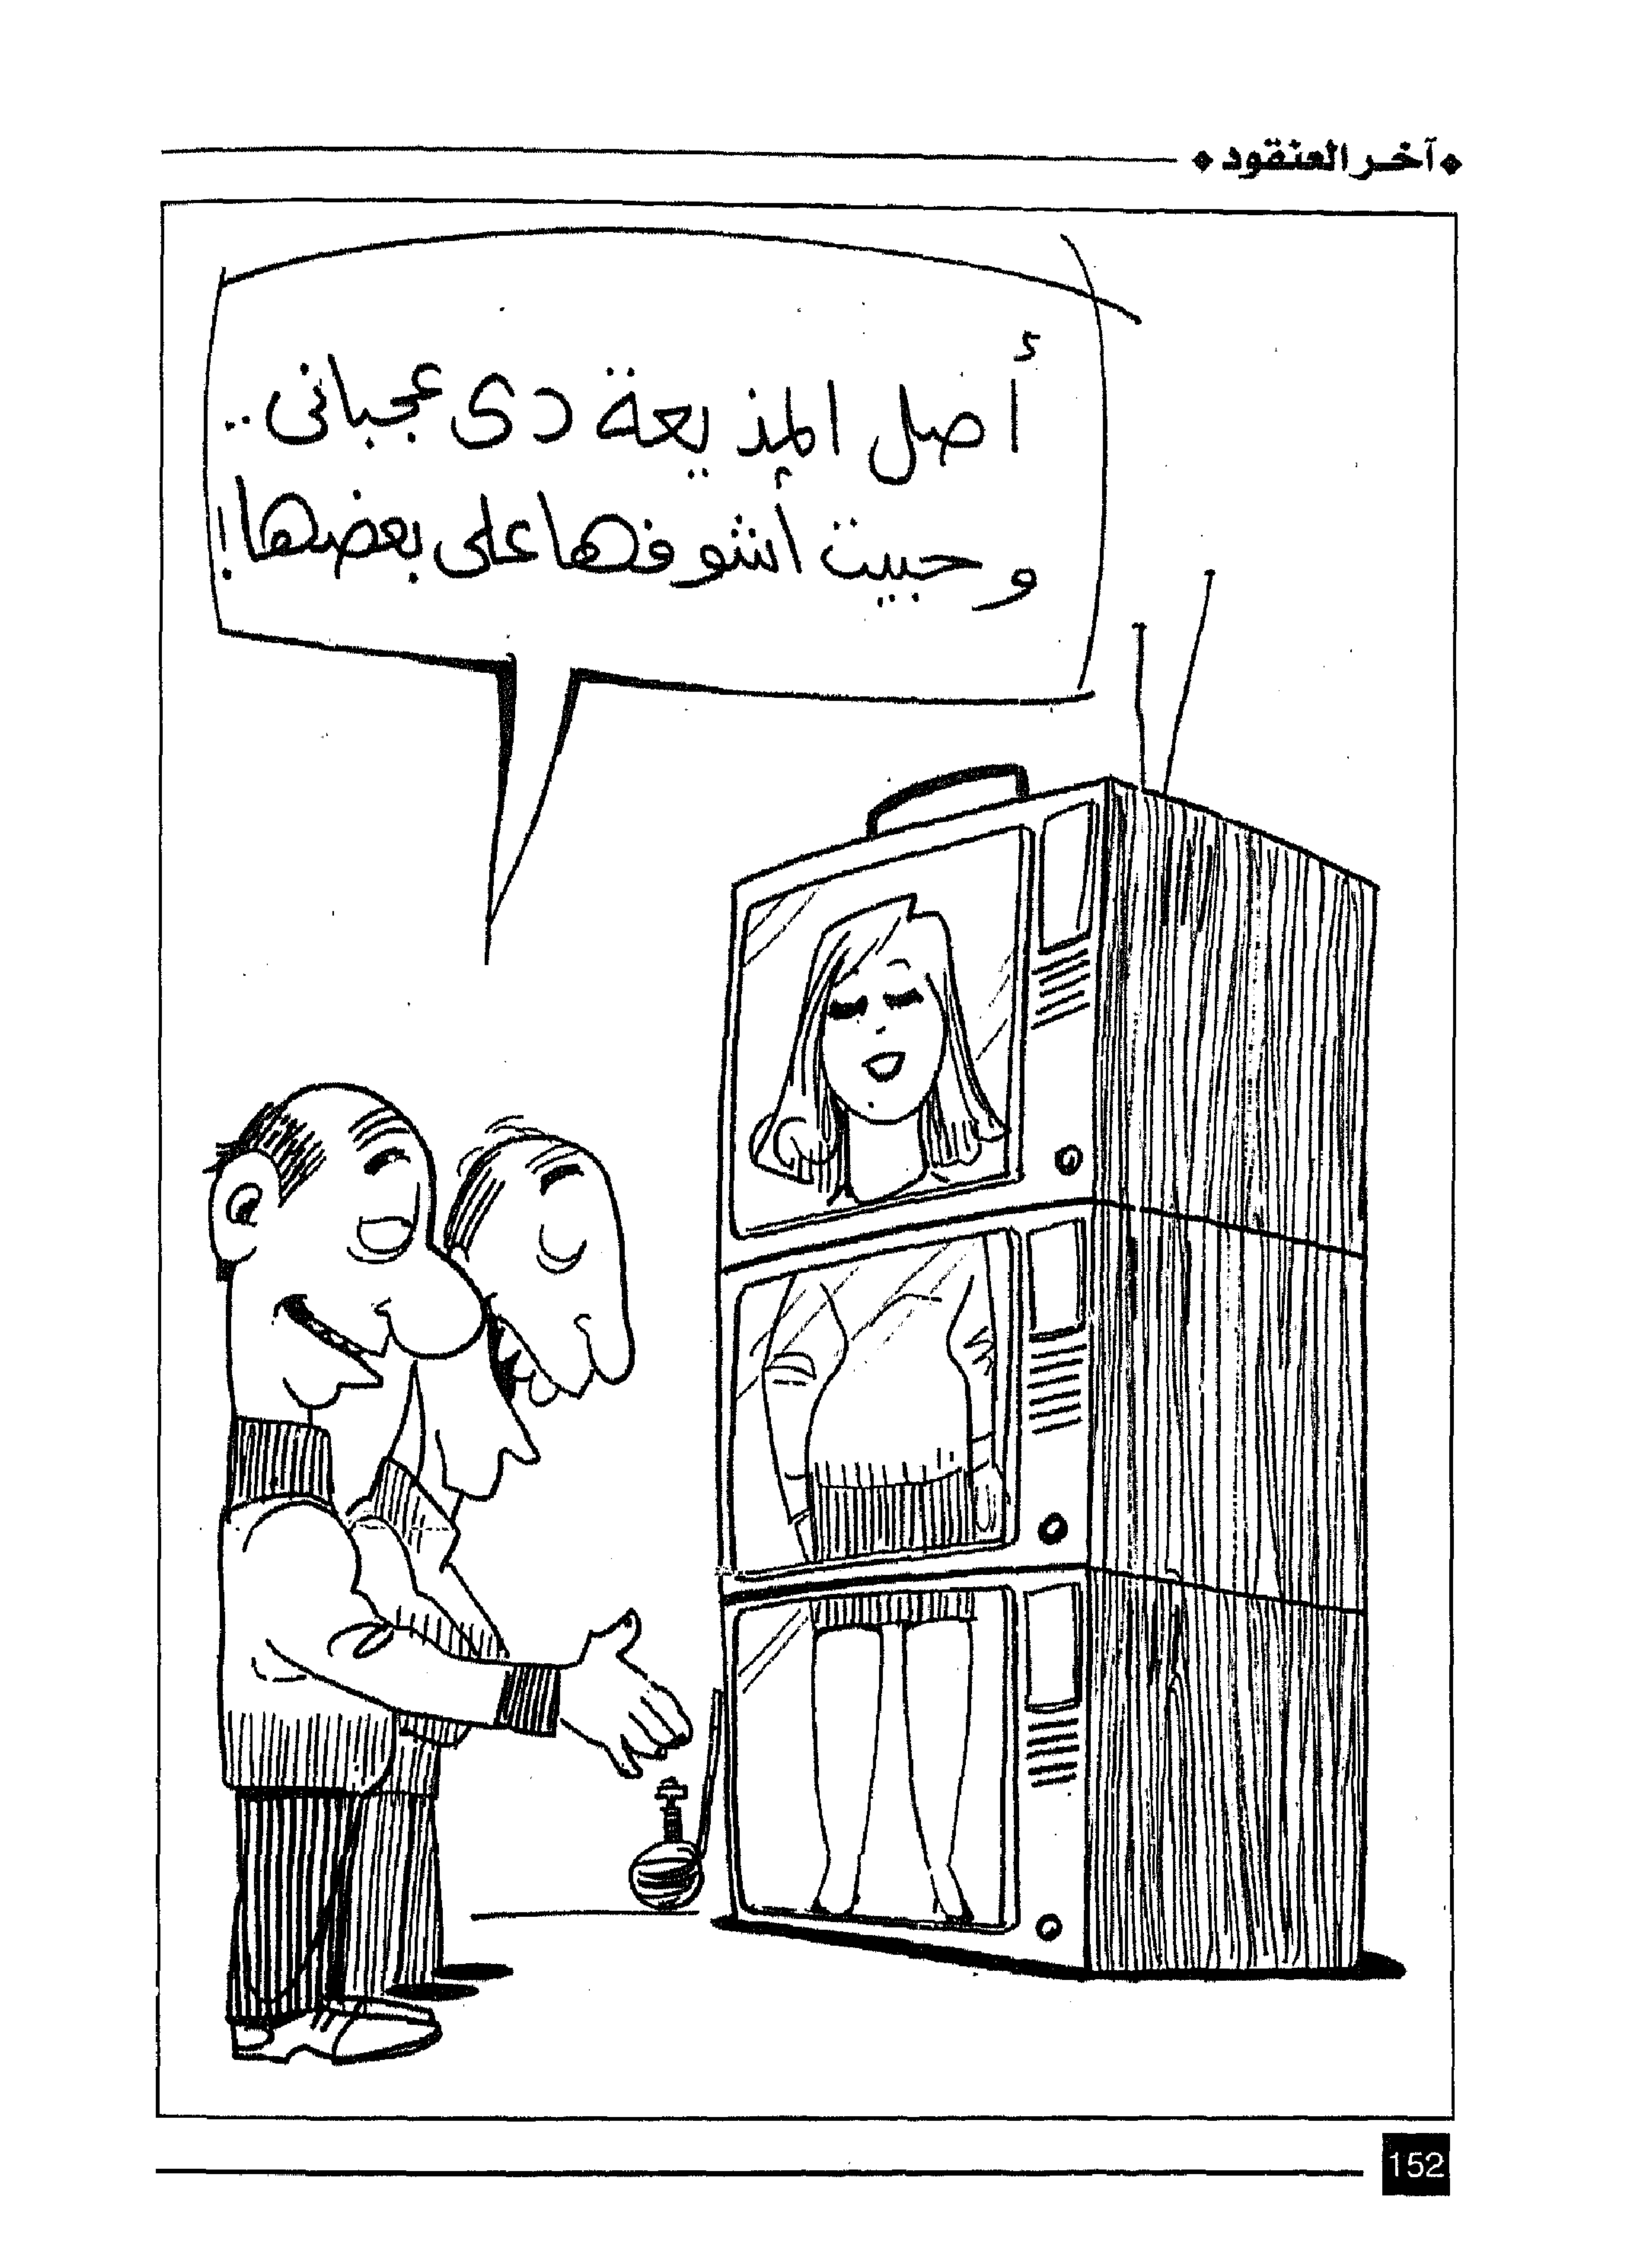 آخر العنقود
أصل المذيعة دى عجبانى..
وحبيت أشوفها على بعضها!
152